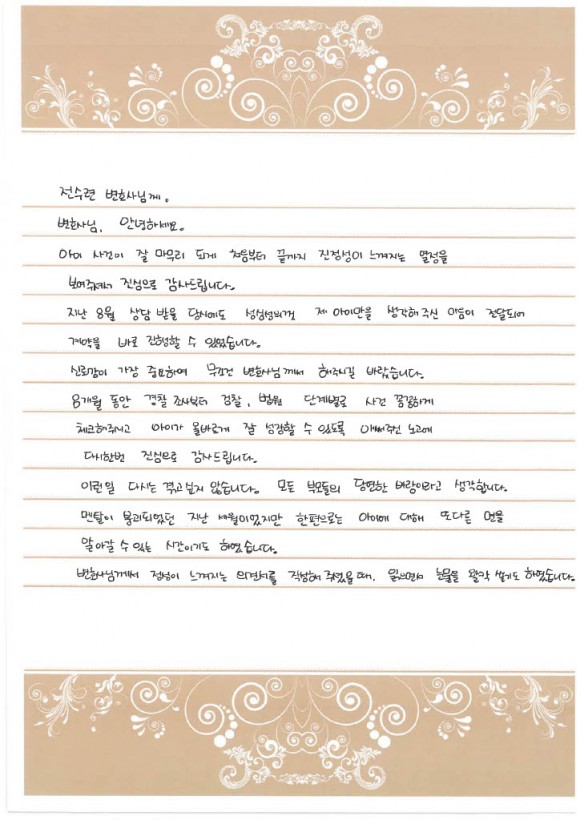 전수련 변호사님께.
변호사님, 안녕하세요.
아이 사건이 잘 마무리 되게 처음부터 끝까지 진정성이 느껴지는 열정을
보여주셔서 진심으로 감사드립니다.
지난 8월 상담 받을 당시에도 성심성의껏 제 아이만을 생각해 주신 마음이 전달되어
계약을 바로 진행할 수 있었습니다.
신뢰감이 가장 중요하여 무조건 변호사님께서 해주시길 바랐습니다.
8개월 동안 경찰 조사부터 검찰, 법원 단계별로 사건 꼼꼼하게
체크해주시고 아이가 올바르게 잘 성장할 수 있도록 애써주신 노고에
다시한번 진심으로 감사드립니다.
이런일 다시는 겪고싶지 않습니다. 모든 부모들의 당연한 바램이라고 생각합니다.
멘탈이 붕괴되었던 지난 세월이었지만 한편으로는 아이에 대해 또다른 면을
알아갈 수 있는 시간이기도 하였습니다.
변호사님께서 정성이 느껴지는 의견서를 작성해 주셨을 때, 읽으면서 눈물을 왈칵 쏟기도 하였습니다.